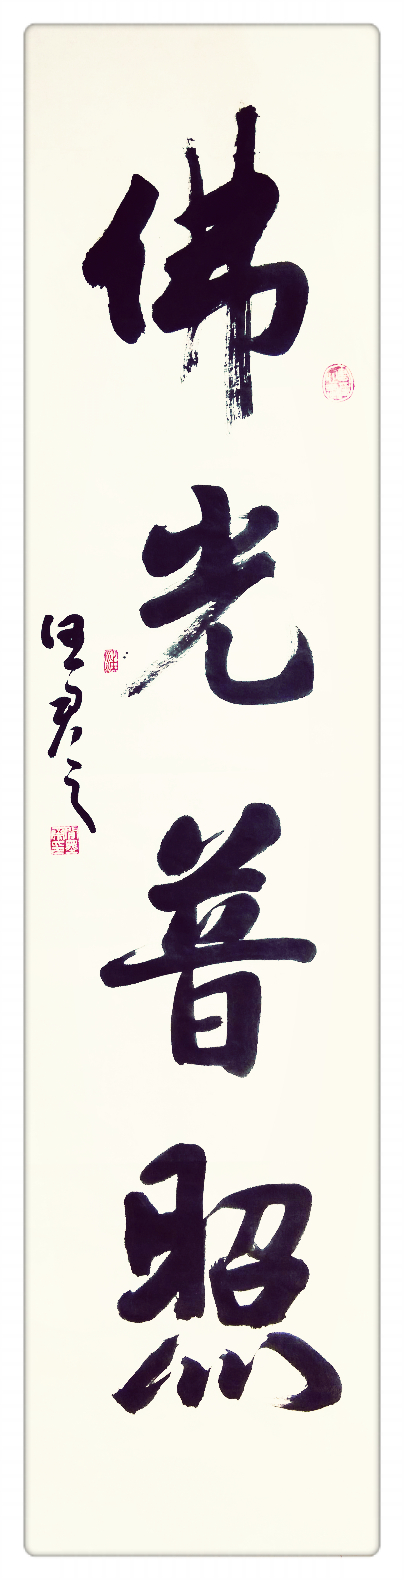 佛光普照